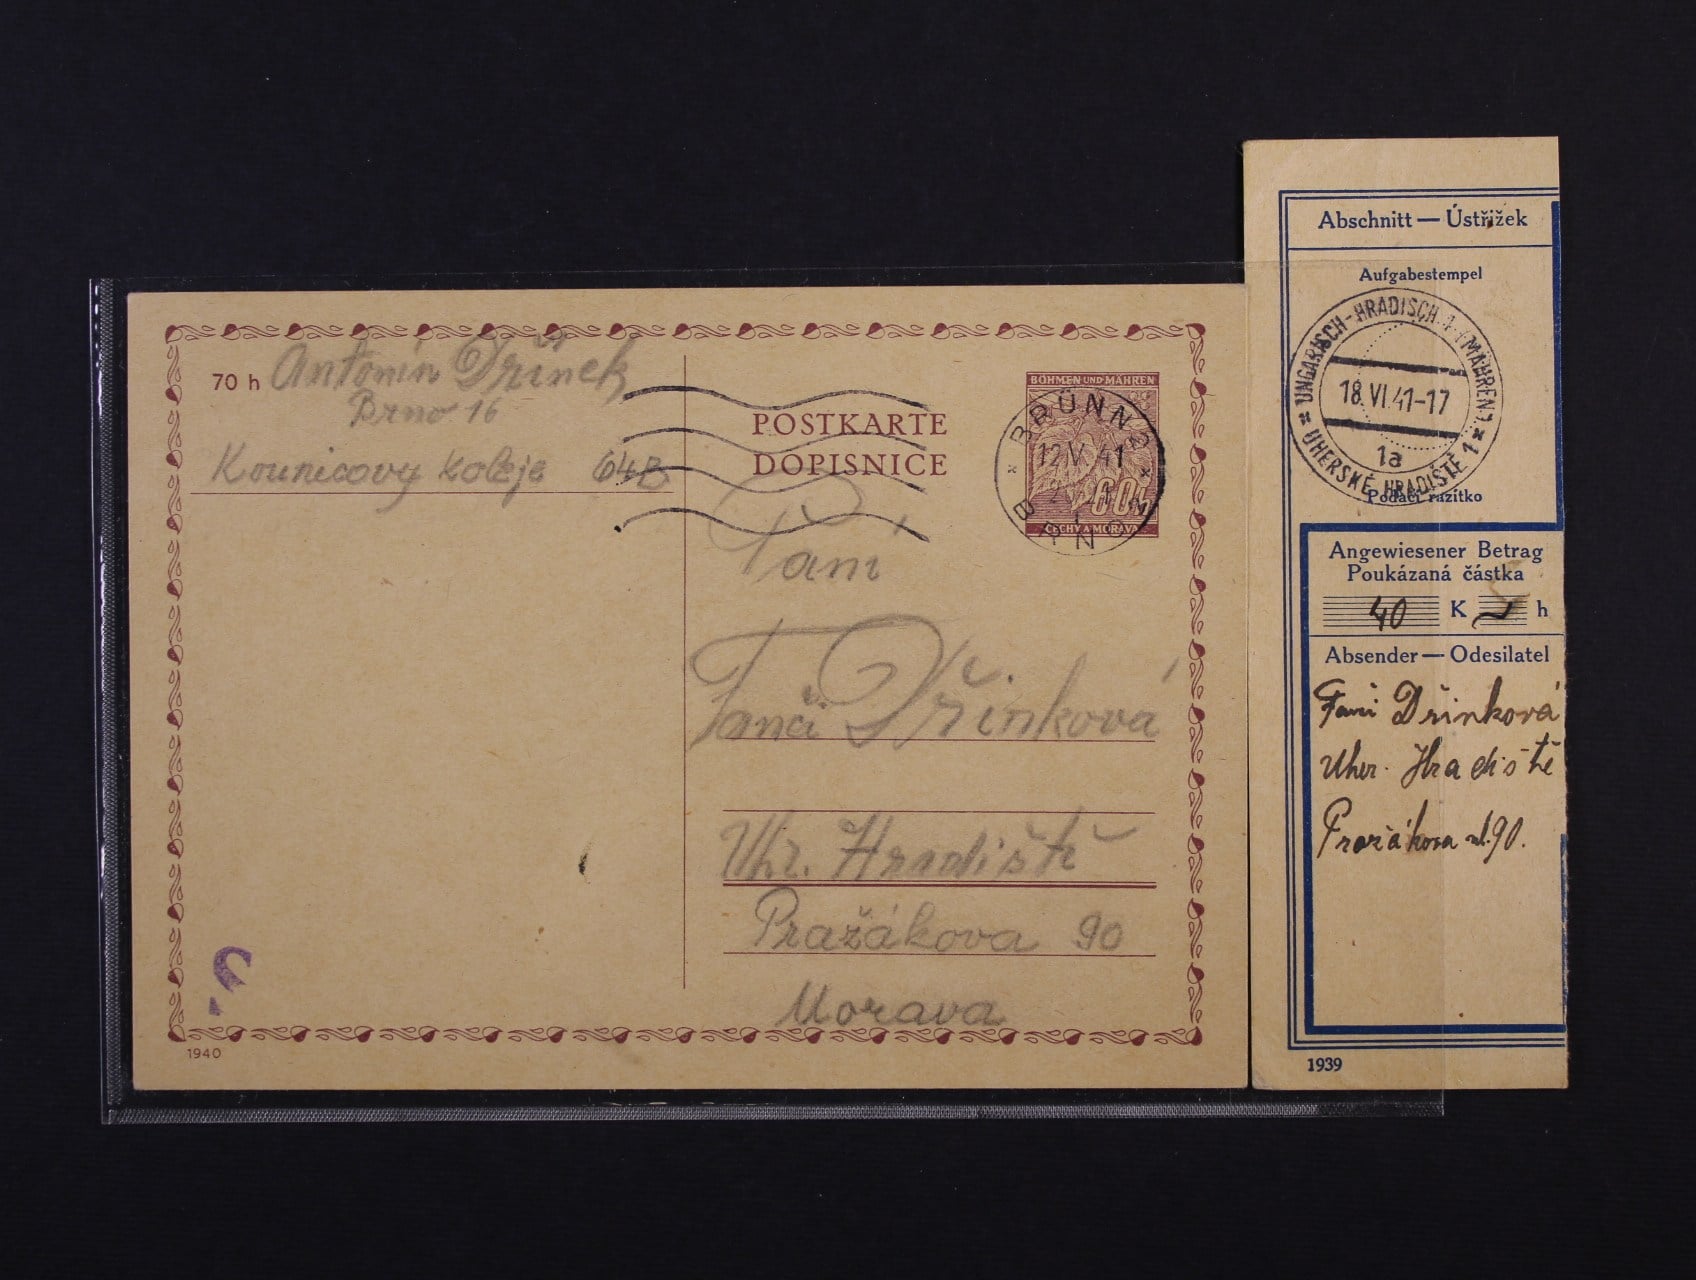 70 h Antonín Dřínek
Brno 16
Kounicovy koleje 64B
POSTKARTE
DOPISNICE
BÖHMEN UND MÄHREN
60h
ČECHY A MORAVA
BRÜNN 2
12.V.41
BRNO 2
Paní
Fanči Dřínková
Uhr. Hradiště
Pražákova 90
Morava
1940
Abschnitt — Ústřižek
Aufgabestempel
UNGARISCH-HRADISCH 1 (MÄHREN)
18.VI.41-17
1a
UHERSKÉ HRADIŠTĚ 1
Podací razítko
Angewiesener Betrag
Poukázaná částka
40 K h
Absender — Odesilatel
Fani Dřinková
Uher. Hradiště
Pražákova ul. 90.
1939